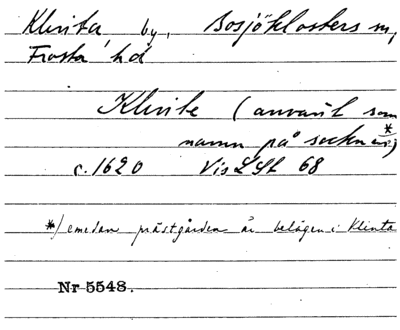 Klinta, by, Bosjöklosters sn,
Frosta hd
Klinte (använt som
namn på socknen*)
c. 1620 Vis LSt 68
*/ emedan prästgården är belägen i Klinta
Nr 5548.